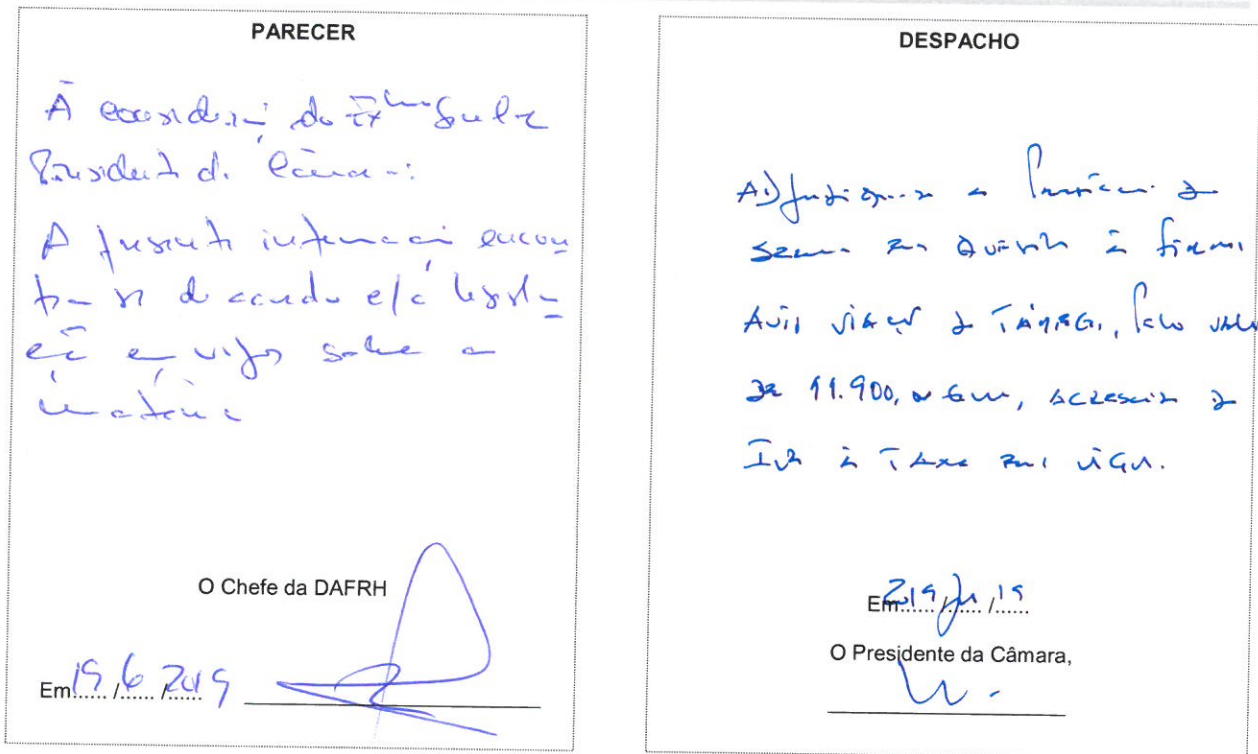 PARECER
À consideração do Exmo Senhor
Presidente da Câmara:
A presente informação encon
tra-se de acordo c/a legisla
ção em vigor sobre a
matéria
O Chefe da DAFRH
Em 19/6/2019
DESPACHO
Adjudique-se a Prestação de
à firma
Auto Viação do Tâmega, pelo valor
de 11.900,00 euros, acrescido de
IVA à taxa em vigor.
Em 2019/Jun/19
O Presidente da Câmara,